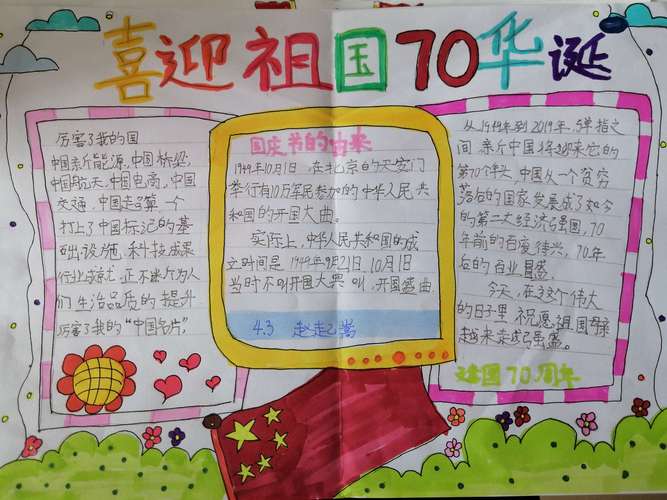 喜迎祖国70华诞
厉害了我的国
中国新能源、中国桥梁、
中国航天、中国电商、中国
交通,中国走了第一个
打上了中国标记的基
础设施、科技成果
行业成就,正不断为人
们生活品质的提升
厉害了我的“中国名片”
国庆节的由来
1949年10月1日,在北京的天安门
举行有10万军民参加的中华人民共
和国的开国大曲。
实际上,中华人民共和国的成
立时间是1949年9月21日,10月1日
当时不叫开国大典叫,开国盛曲.
4.3
从1949年到2019年,弹指之
间,新中国将迎来它的
第70个年头,中国从一个贫穷
落后的国家发展成了如今
的第二大经济强国,70
年前的百废待兴,70年
后的百业昌盛.
今天,在这个伟大
的日子里,祝愿祖国母亲
越来走成强盛。
建国70周年